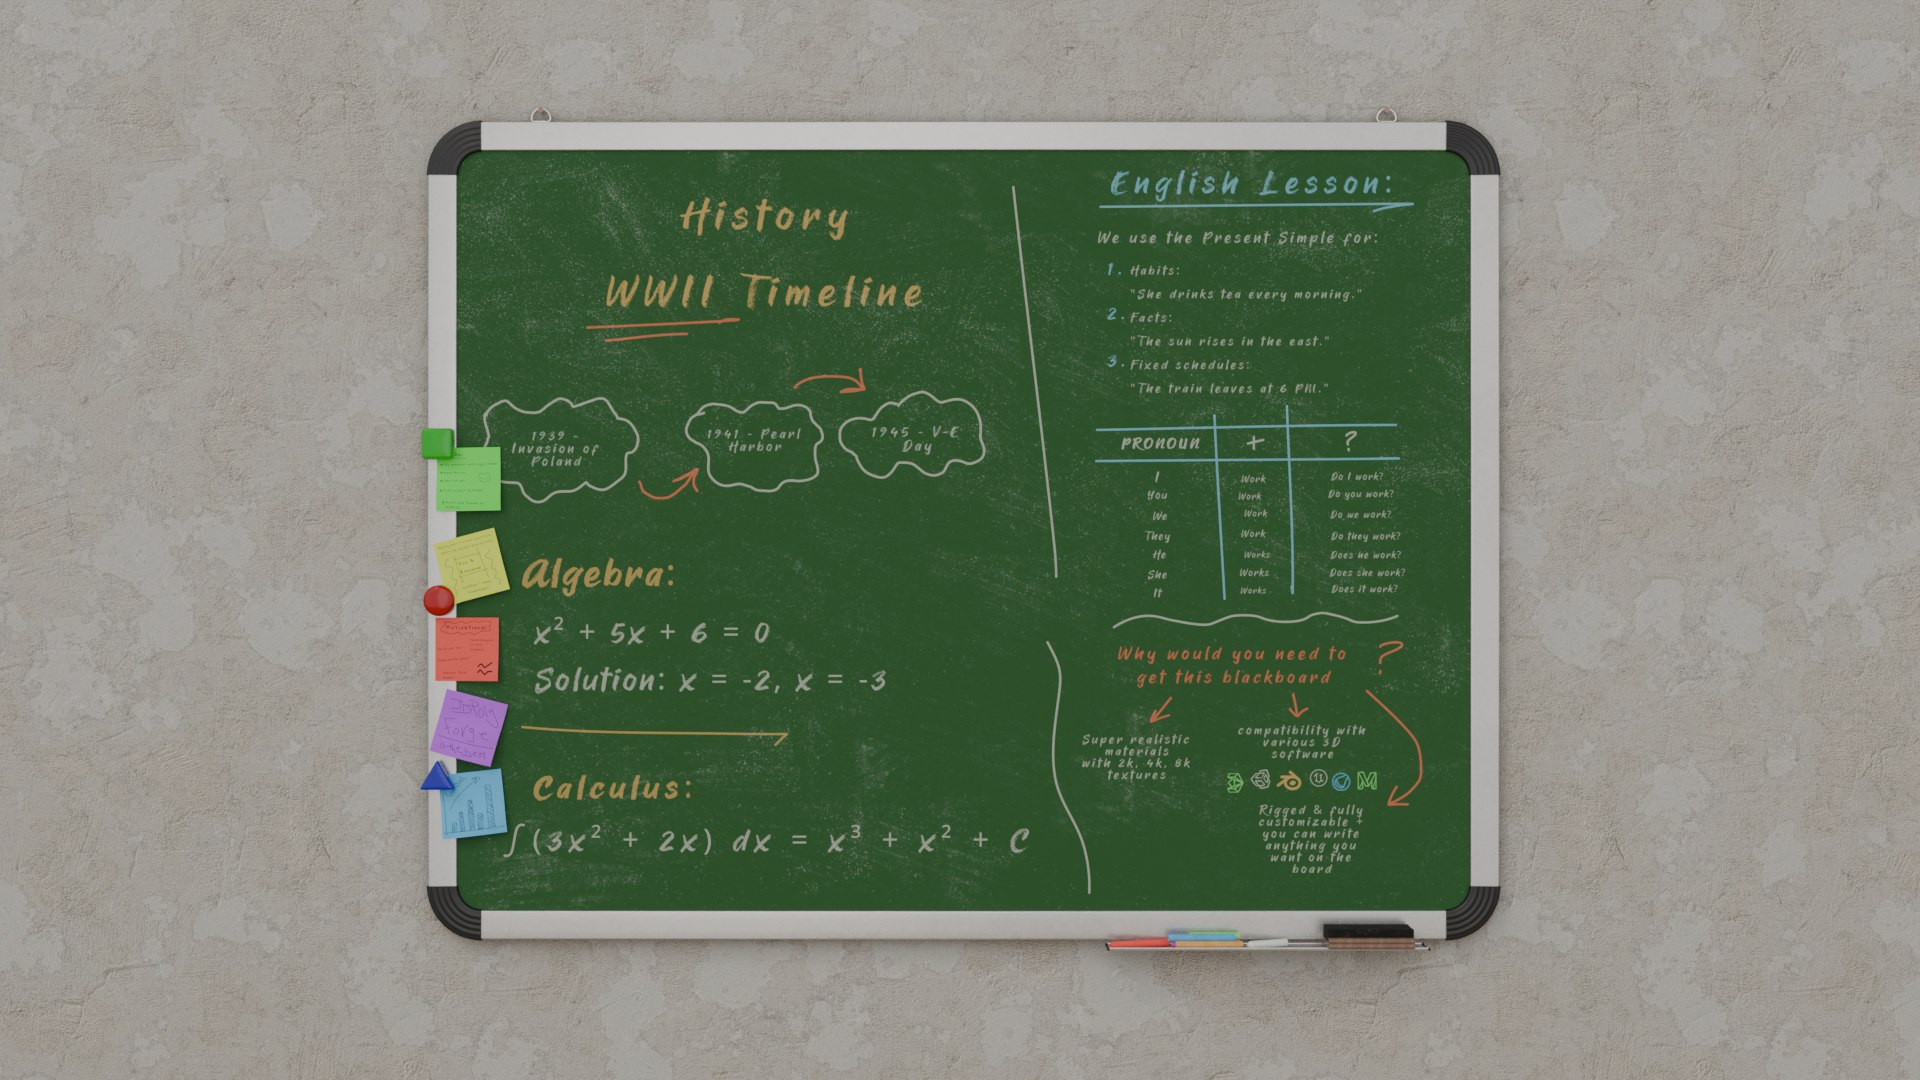 History
WWII Timeline
1939 -
Invasion of
Poland
1941 - Pearl
Harbor
1945 - V-E
Day
Algebra:
x² + 5x + 6 = 0
Solution: x = -2, x = -3
Calculus:
∫(3x² + 2x) dx = x³ + x² + C
English Lesson:
We use the Present Simple for:
1. Habits:
"She drinks tea every morning."
2. Facts:
"The sun rises in the east."
3. Fixed schedules:
"The train leaves at 6 PM."
PRONOUN + ?
I Work Do I work?
You Work Do you work?
We Work Do we work?
They Work Do they work?
He Works Does he work?
She Works Does she work?
It Works Does it work?
Why would you need to
get this blackboard ?
Super realistic
materials
with 2k, 4k, 8k
textures
compatibility with
various 3D
software
Rigged & fully
customizable +
you can write
anything you
want on the
board
Motivational
Forge
is the best